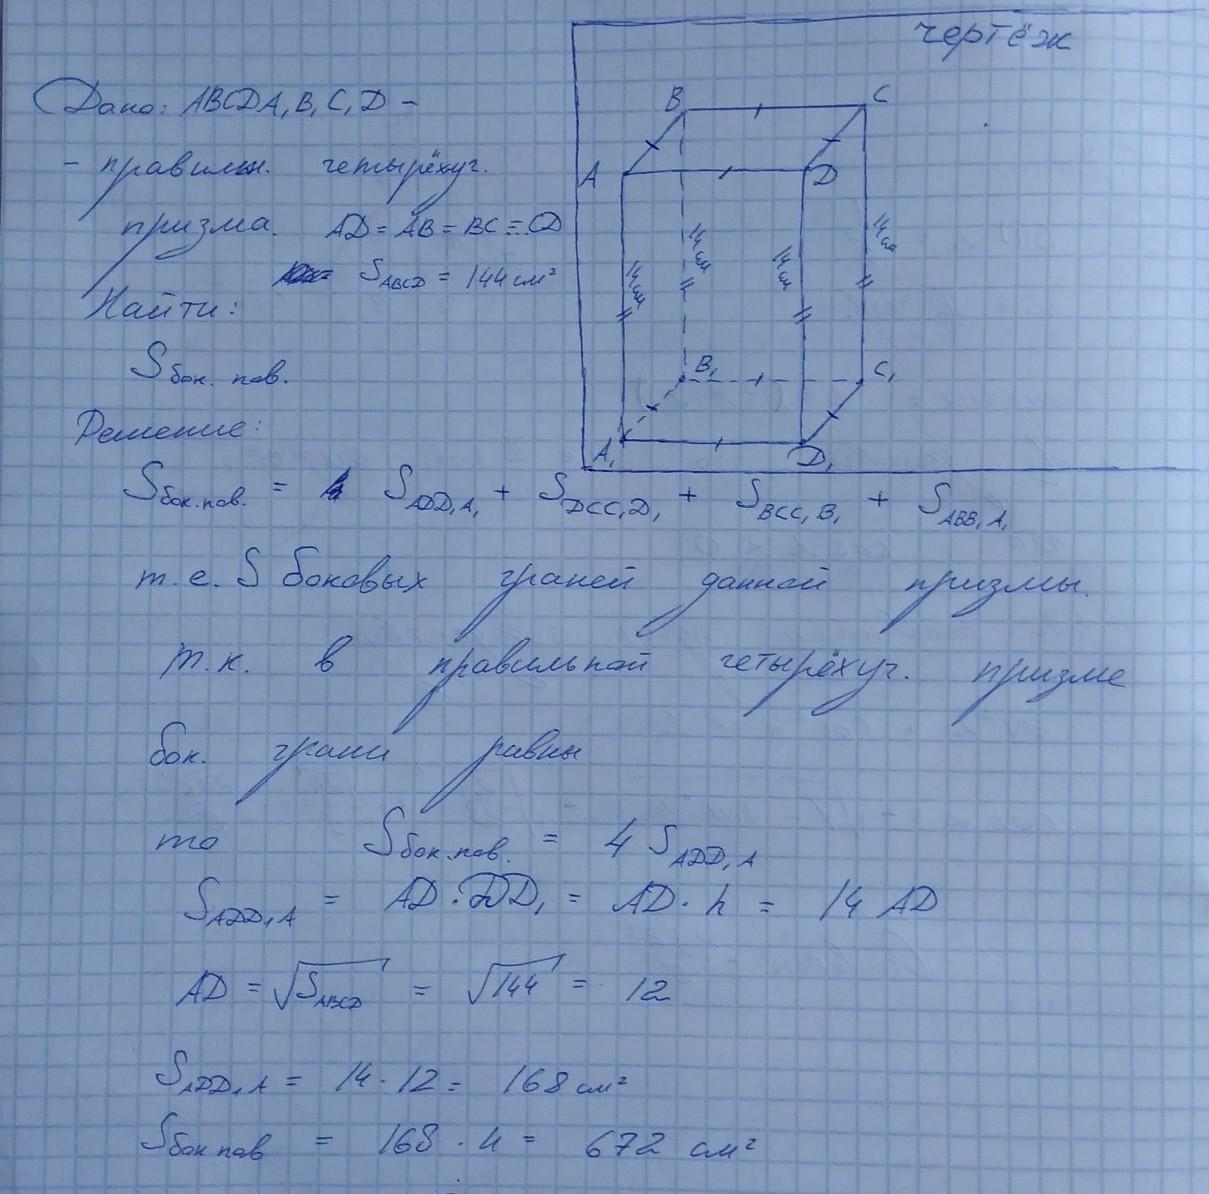 чертёж
Дано: ABCDA₁B₁C₁D –
– правильн. четырёхуг.
призма. AD = AB = BC = CD
S ABCD = 144 см²
Найти:
S бок. пов.
B
C
A
D
14 см
14 см
14 см
14 см
B₁
C₁
A₁
D₁
Решение:
S бок.пов. = S ADD₁A₁ + S DCC₁D₁ + S BCC₁B₁ + S ABB₁A₁
т.е. S боковых граней данной призмы.
т.к. в правильной четырёхуг. призме
бок. грани равны
то S бок.пов. = 4 S ADD₁A
S ADD₁A = AD · DD₁ = AD · h = 14 AD
AD = √S ABCD = √144 = 12
S ADD₁A = 14 · 12 = 168 см²
S бок пов = 168 · 4 = 672 см²